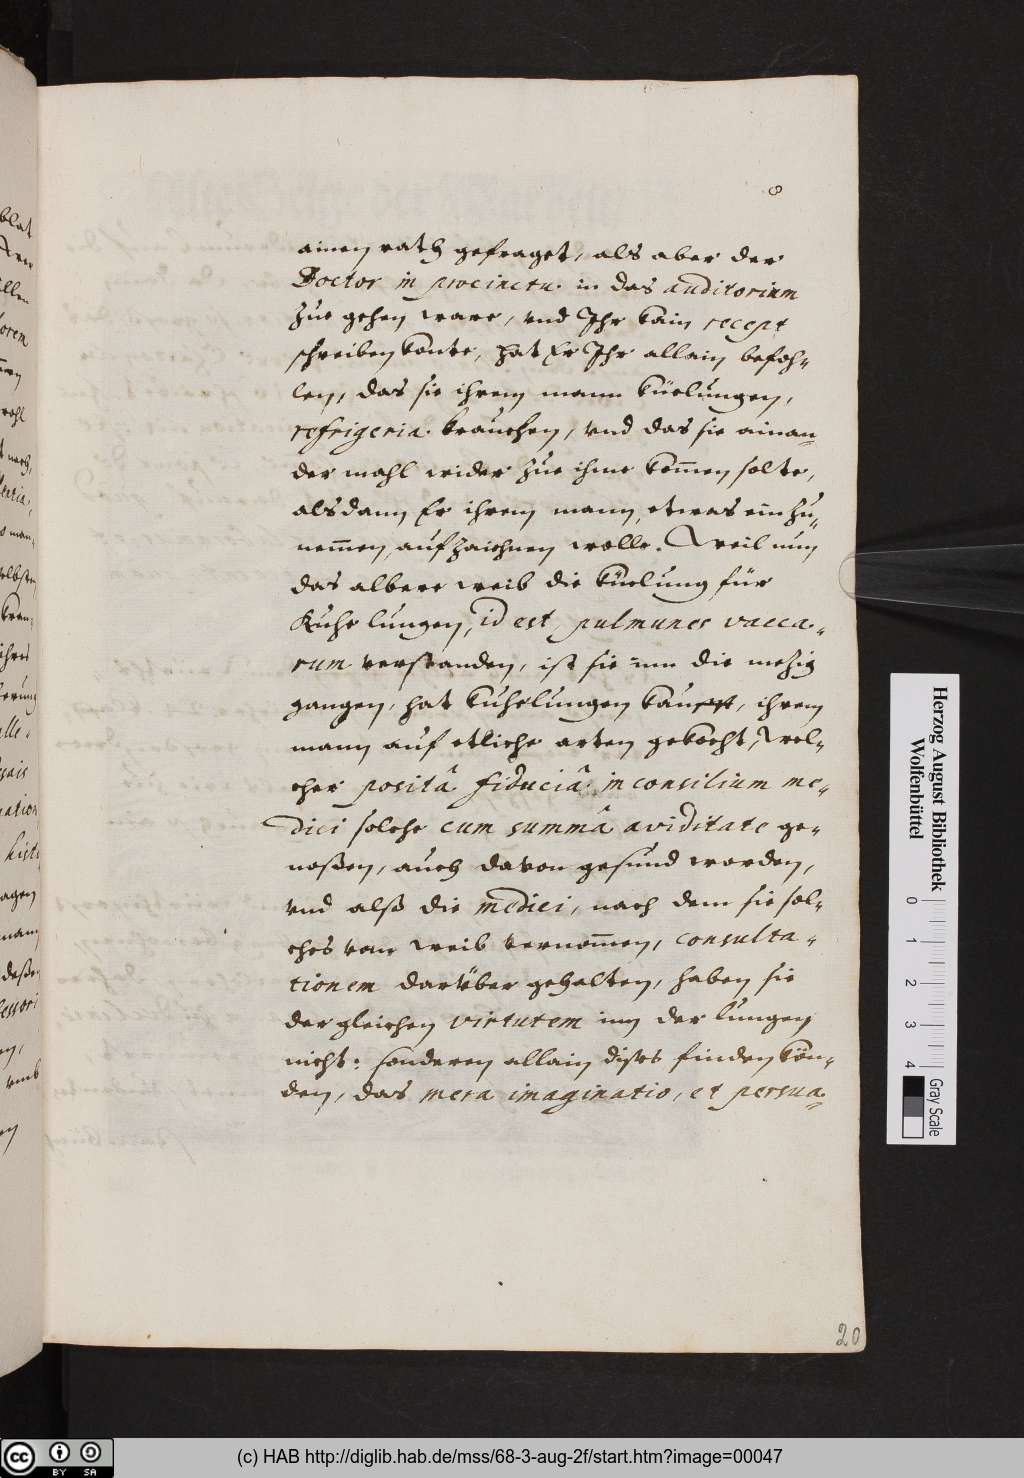 8
ainen rath gefraget, als aber der
Doctor in procinctu in das auditorium
zue gehen ware, vnd Ihr kain recept
schreiben konte, hat Er Ihr allain befoh=
len, das sie ihrem mann küelungen,
refrigeria brauchen, vnd das sie ainan=
der mahl wider zue ihme kom̄en solte,
alsdann Er ihrem mann, etwas einzu=
nem̄en, aufzaichnen wolle. Weil nun
das albere weib die küelung für
Kuhe lungen, id est, pulmunes vacca=
rum verstanden, ist sie inn die mezig
gangen, hat kuhelungen kaufft, ihrem
mann auf etliche arten gekocht, Wel=
cher positâ fiduciâ in consilium me=
dici solche cum summâ aviditate ge=
noßen, auch davon gesund worden,
vnd alß die medici, nach dem sie sol=
ches vom weib vernom̄en, consulta=
tionem darüber gehalten, haben sie
dergleichen virtutem inn der lungen
nicht: sonderen allain dises finden kön=
den, das mera imaginatio, et persua=
20
Herzog August Bibliothek
Wolfenbüttel
0 1 2 3 4
Gray Scale
cc BY SA
(c) HAB http://diglib.hab.de/mss/68-3-aug-2f/start.htm?image=00047